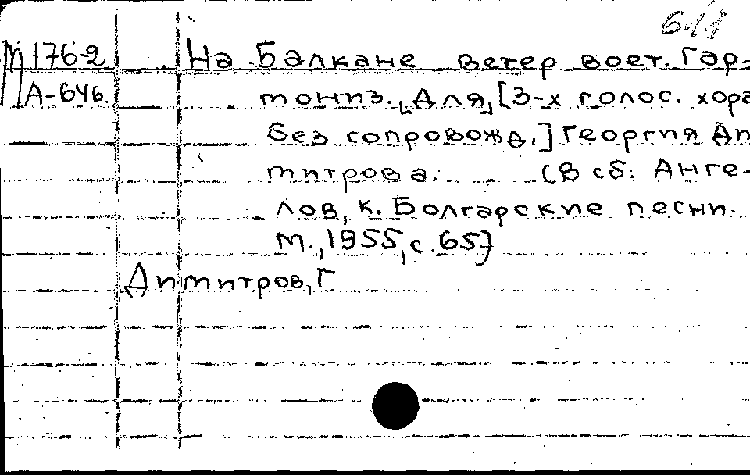 М 176-2
А-646
На Балкане ветер воет. Гар-
мониз. Для [3-х голос. хора
без сопровожд.] Георгия Ди
митрова. (В сб: Анге-
лов, К. Болгарские песни.
М., 1955, с. 65)
Димитров, Г